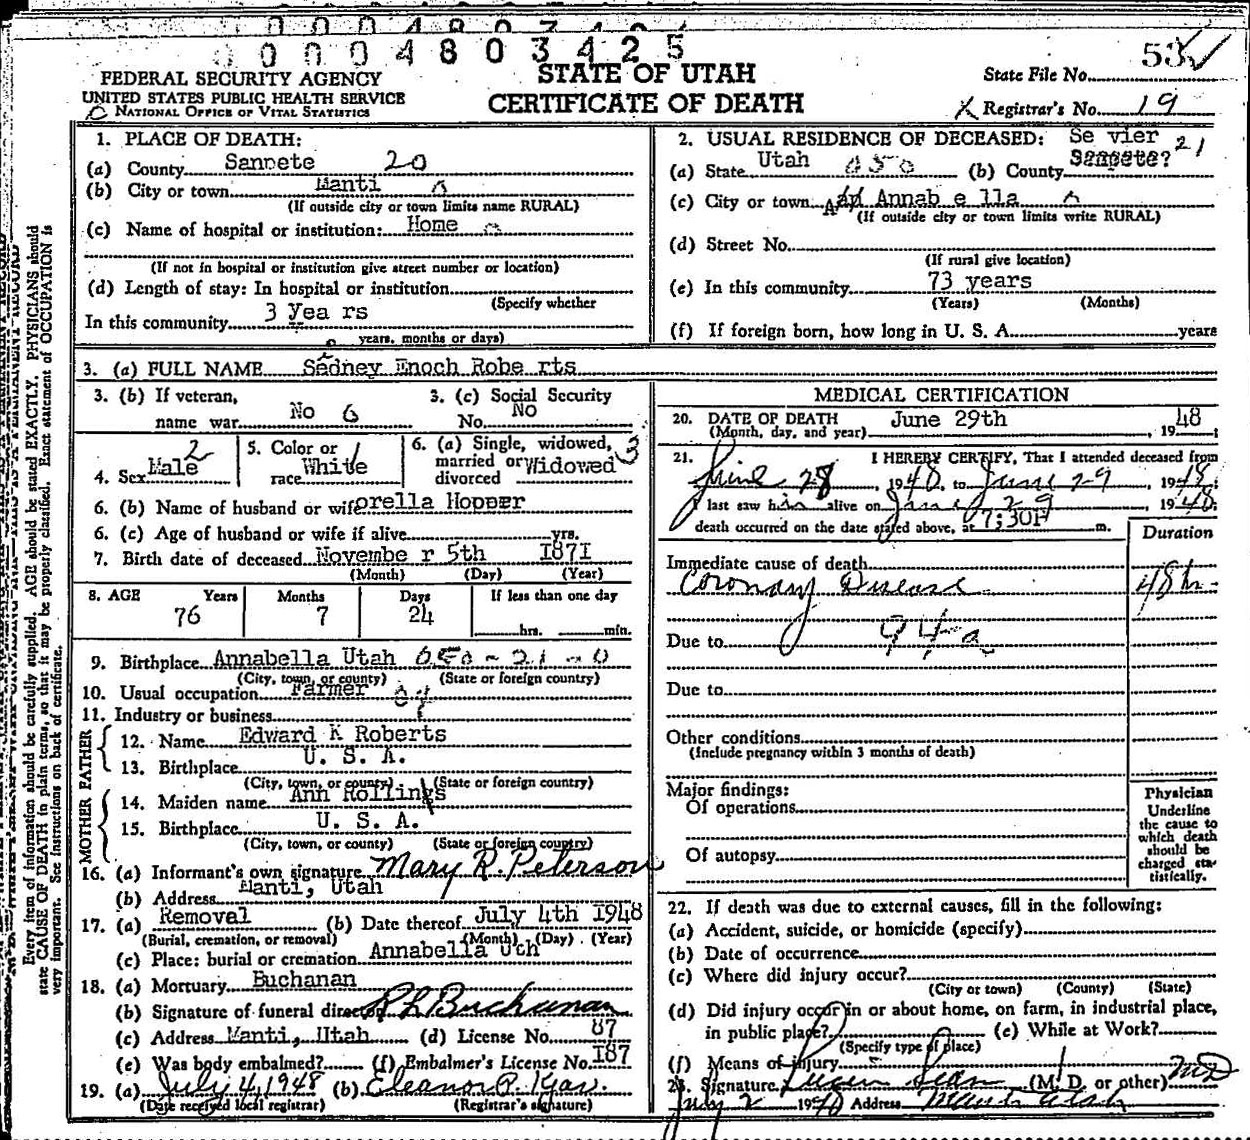 0004803425
FEDERAL SECURITY AGENCY
UNITED STATES PUBLIC HEALTH SERVICE
NATIONAL OFFICE OF VITAL STATISTICS
STATE OF UTAH
CERTIFICATE OF DEATH
State File No.
Registrar's No. 19
1. PLACE OF DEATH:
(a) County Sanpete 20
(b) City or town Manti
(If outside city or town limits name RURAL)
(c) Name of hospital or institution: Home
(If not in hospital or institution give street number or location)
(d) Length of stay: In hospital or institution
(Specify whether
In this community 3 Yea rs
years, months or days)
2. USUAL RESIDENCE OF DECEASED: Se vier 21
(a) State Utah (b) County Sanpete?
(c) City or town Annab e lla
(If outside city or town limits write RURAL)
(d) Street No.
(If rural give location)
(e) In this community 73 years
(Years) (Months)
(f) If foreign born, how long in U. S. A. years
3. (a) FULL NAME Sedney Enoch Robe rts
3. (b) If veteran, name war No 6
3. (c) Social Security No. No
4. Sex Male 2
5. Color or race White 1
6. (a) Single, widowed, married or divorced Widowed 3
6. (b) Name of husband or wife orella Hopper
6. (c) Age of husband or wife if alive yrs.
7. Birth date of deceased Novembe r 5th I87I
(Month) (Day) (Year)
8. AGE Years Months Days If less than one day
76 7 24 hrs. min.
9. Birthplace Annabella Utah
(City, town, or county) (State or foreign country)
10. Usual occupation Farmer
11. Industry or business
FATHER
12. Name Edward K Roberts
13. Birthplace U. S. A.
(City, town, or county) (State or foreign country)
MOTHER
14. Maiden name Ann Rollings
15. Birthplace U. S. A.
(City, town, or county) (State or foreign country)
16. (a) Informant's own signature Mary R. Peterson
(b) Address Manti, Utah
17. (a) Removal (b) Date thereof July 4th I948
(Burial, cremation, or removal) (Month) (Day) (Year)
(c) Place: burial or cremation Annabella Uth
18. (a) Mortuary Buchanan
(b) Signature of funeral director Buchanan
(c) Address Manti, Utah (d) License No. 87
(e) Was body embalmed? (f) Embalmer's License No. I87
19. (a) July 4, 1948 (b) Eleanor P.
(Date received local registrar) (Registrar's signature)
MEDICAL CERTIFICATION
20. DATE OF DEATH June 29th, 1948;
(Month, day, and year)
21. I HEREBY CERTIFY, That I attended deceased from
June 28, 1948, to June 29 1948.
I last saw him alive on June 29 1948;
death occurred on the date stated above, at 7;30P m.
Duration
Immediate cause of death
Coronary Disease 48 hr-
Due to 94a
Due to
Other conditions
(Include pregnancy within 3 months of death)
Major findings:
Of operations
Of autopsy
Physician
Underline
the cause to
which death
should be
charged sta-
tistically.
22. If death was due to external causes, fill in the following:
(a) Accident, suicide, or homicide (specify)
(b) Date of occurrence
(c) Where did injury occur?
(City or town) (County) (State)
(d) Did injury occur in or about home, on farm, in industrial place,
in public place? (e) While at Work?
(Specify type of place)
(f) Means of injury
23. Signature (M. D. or other) MD
July 2 19 Address Manti Utah
Every item of information should be carefully supplied. AGE should be stated EXACTLY. PHYSICIANS should
state CAUSE OF DEATH in plain terms, so that it may be properly classified. Exact statement of OCCUPATION is
very important. See instructions on back of certificate.